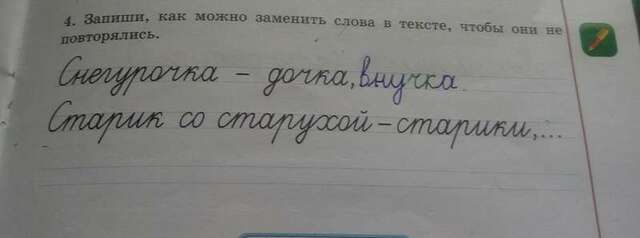 4. Запиши, как можно заменить слова в тексте, чтобы они не
повторялись.
Снегурочка – дочка, внучка.
Старик со старухой – старики, ...